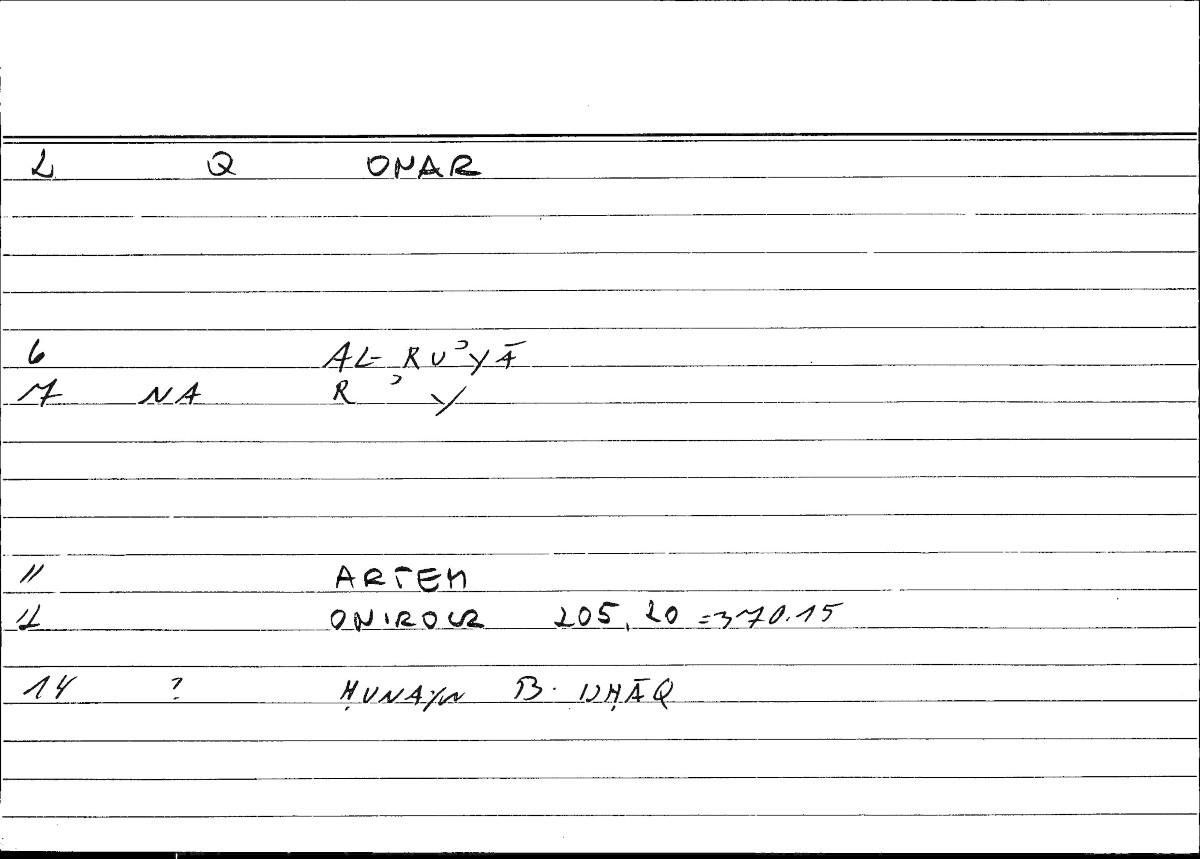 2 Q ONAR
6 AL-RUʾYĀ
7 NA R ʾ Y
11 ARTEM
12 ONIROCR 205,20 =370.15
14 ? ḤUNAYN B. ISḤĀQ